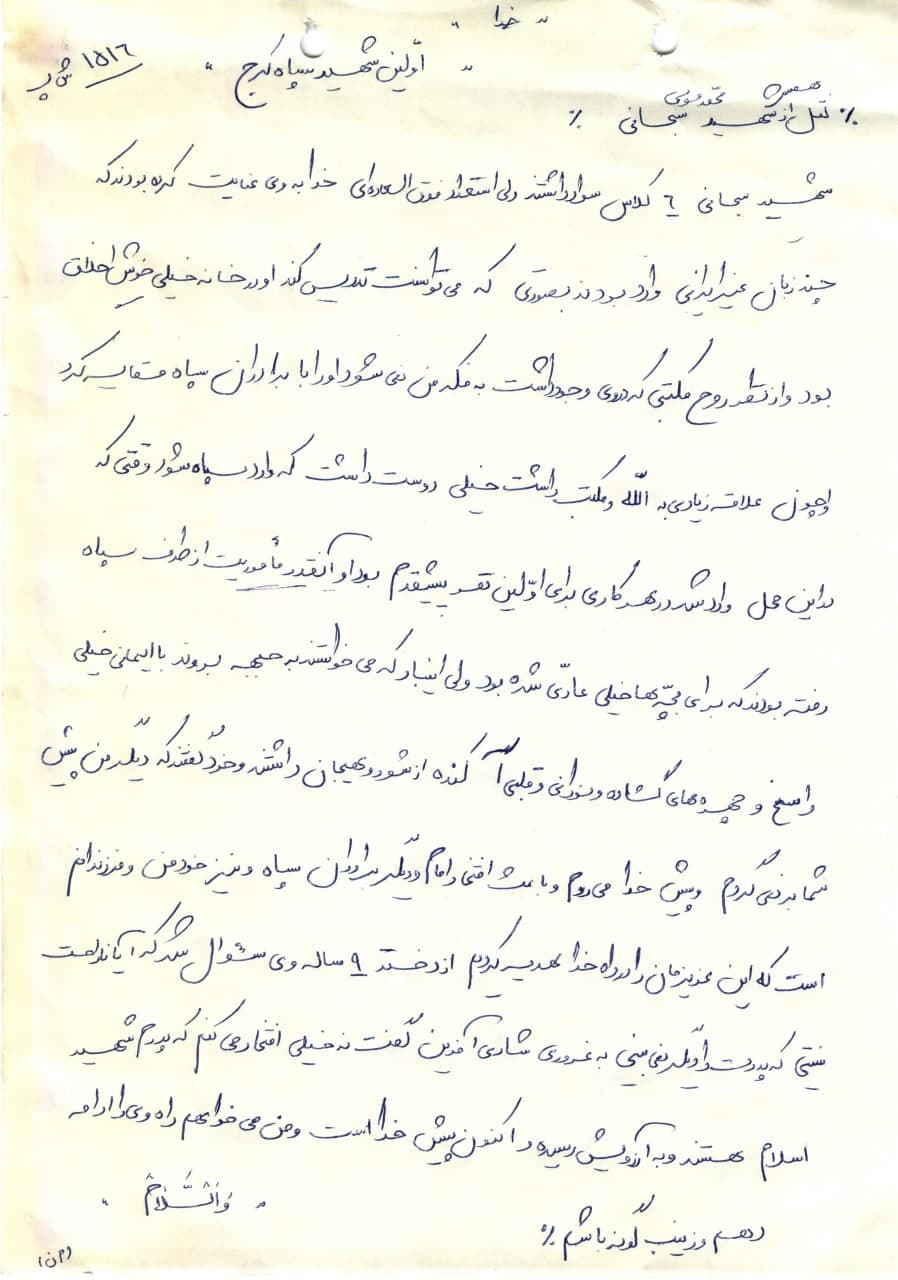 " خدا "
" اوّلین شهید سپاه کرج "
۱۵۱۶
٪ نقل از همسر شهید محمد موسی سبحانی ٪
شهید سبحانی ۶ کلاس سواد داشتند ولی استعداد فوق العاده‌ای خدا به وی عنایت کرده بودند که
چند زبان غیر ایرانی وارد بودند بصورتی که می توانست تدریس کند او در خانه خیلی خوش اخلاق
بود و از نظر روح مکتبی که در وی وجود داشت به فکر من نمی شود او را با برادران سپاه مقایسه کرد
و چون علاقه زیادی به الله و مکتب داشت خیلی دوست داشت که وارد سپاه شود وقتی که
در این محل وارد شد در هر کاری برای اوّلین نفر پیشقدم بود او آنقدر مأموریت از طرف سپاه
رفته بودند که برای بچّه ها خیلی عادّی شده بود ولی اینبار که می خواستند به جبهه بروند با ایمانی خیلی
راسخ و چهره های گشاده و نورانی و قلبی آکنده از شور و هیجان داشتند و خود گفتند که دیگر من پیش
شما بر نمی گردم و پیش خدا می روم و باعث افتخار امام و دیگر برادران سپاه و نیز خود من و فرزندانم
است که این عزیزمان را در راه خدا هدیه کردیم از دختر ۹ ساله وی سئوال شد که آیا ناراحت
نیستی که پدرت را دیگر نمی بینی به غروری شادی آفرین گفت نه خیلی افتخار می کنم که پدرم شهید
اسلام هستند و به آرزویش رسیده و اکنون پیش خدا است و من می خواهم راه وی را ادامه
دهم و زینب گونه باشم ٪
" والسّلام "
(م ن)